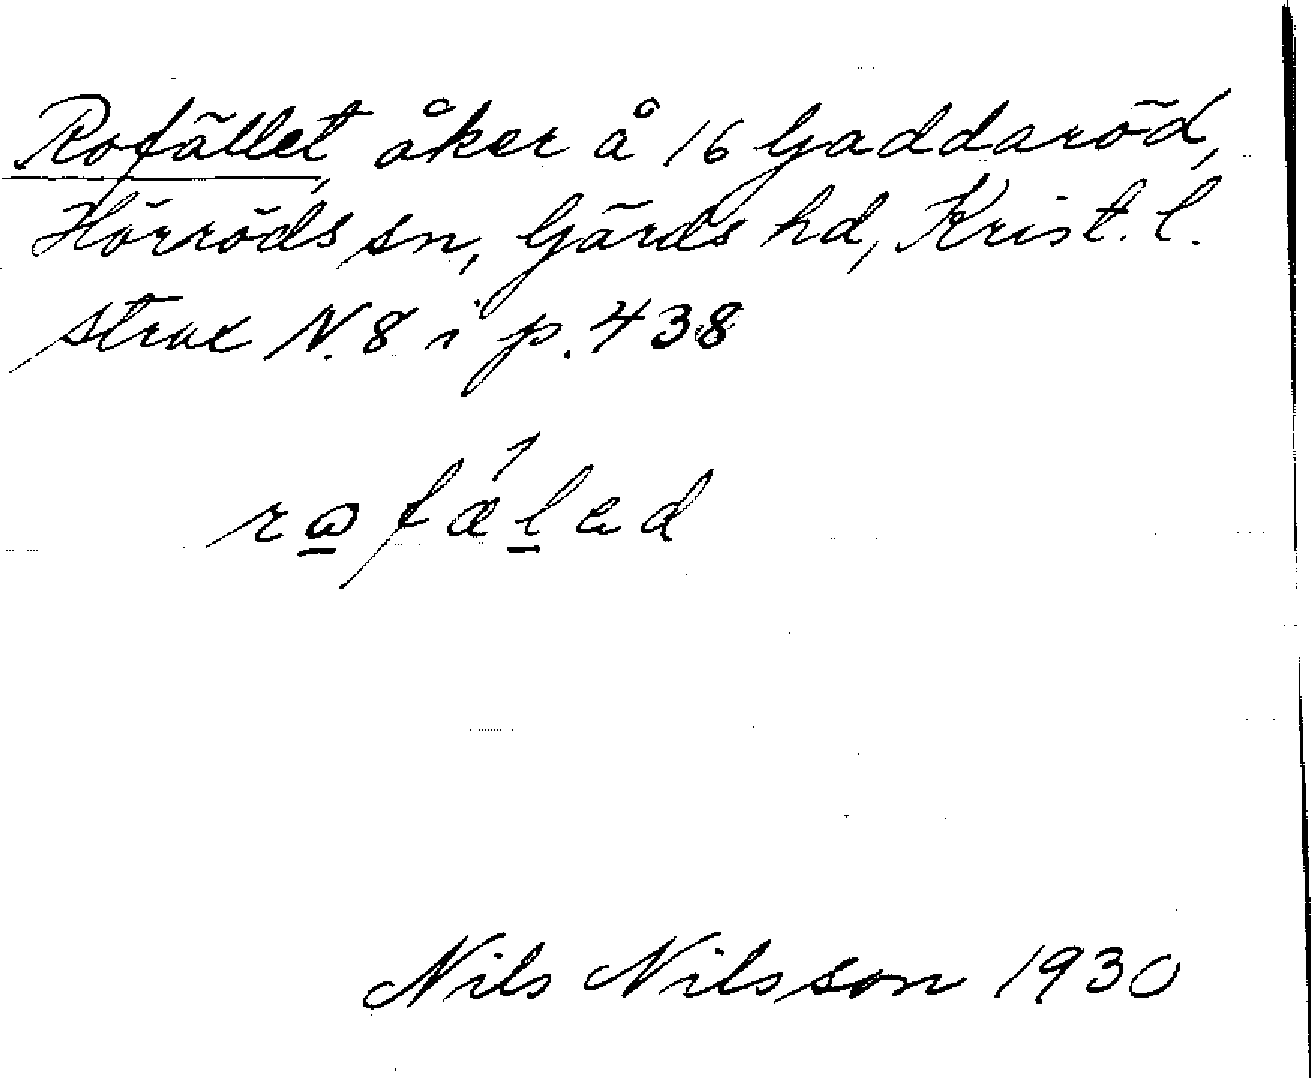 Rofället, åker å 16 Gaddaröd,
Hörröds sn, Gärds hd, Krist. l.
strax N. 8 i p. 438
rofæ´lad
Nils Nilsson 1930